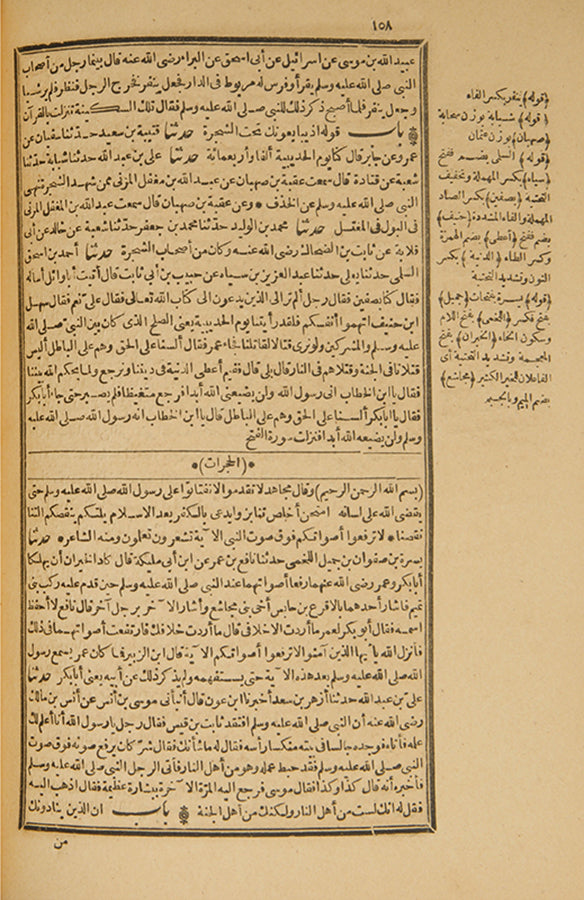 ١٥٨
عبيد الله بن موسى عن اسرائيل عن أبى اسحق عن البراء رضى الله عنه قال بينما رجل من أصحاب
النبى صلى الله عليه وسلم يقرأ وفرس له مربوط فى الدار فجعل ينفر نخرج الرجل فنظر فلم ير شيأ
وجعل ينفر فلما أصبح ذكر ذلك للنبى صلى الله عليه وسلم فقال تلك السكينة تنزلت بالقرآن
باب قوله اذ يبايعونك تحت الشجرة حدثنا قتيبة بن سعيد حدثنا سفيان عن
عمرو عن جابر قال كنا يوم الحديبية ألفا وأربعمائة حدثنا على بن عبد الله حدثنا شبابة حدثنا
شعبة عن قتادة قال سمعت عقبة بن صهبان عن عبد الله بن مغفل المزنى ممن شهد الشجرة نهى
النبى صلى الله عليه وسلم عن الخذف * وعن عقبة بن صهبان قال سمعت عبد الله بن المغفل المزنى
فى البول فى المغتسل حدثنا محمد بن الوليد حدثنا محمد بن جعفر حدثنا شعبة عن خالد عن أبى
قلابة عن ثابت بن الضحاك رضى الله عنه وكان من أصحاب الشجرة حدثنا أحمد بن اسحق
السلمى حدثنا يعلى حدثنا عبد العزيز بن سياه عن حبيب بن أبى ثابت قال أتيت أبا وائل أسأله
فقال كنا بصفين فقال رجل ألم تر الى الذين يدعون الى كتاب الله تعالى فقال على نعم فقال سهل
ابن حنيف اتهموا أنفسكم فلقد رأيتنا يوم الحديبية يعنى الصلح الذى كان بين النبى صلى الله
عليه وسلم والمشركين ولو نرى قتالا لقاتلنا فجاء عمر فقال ألسنا على الحق وهم على الباطل أليس
قتلانا فى الجنة وقتلاهم فى النار قال بلى قال ففيم أعطى الدنية فى ديننا ونرجع ولما يحكم الله بيننا
فقال يا ابن الخطاب انى رسول الله ولن يضيعنى الله أبدا فرجع متغيظا فلم يصبر حتى جاء أبا بكر
فقال يا أبا بكر ألسنا على الحق وهم على الباطل قال يا ابن الخطاب انه رسول الله صلى الله عليه
وسلم ولن يضيعه الله أبدا فنزلت سورة الفتح
*(الحجرات)*
(بسم الله الرحمن الرحيم) وقال مجاهد لا تقدموا لا تفتاتوا على رسول الله صلى الله عليه وسلم حتى
يقضى الله على لسانه امتحن أخلص تنابزوا يدعى بالكفر بعد الاسلام يلتكم ينقصكم ألتنا
نقصنا * لا ترفعوا أصواتكم فوق صوت النبى الآية تشعرون تعلمون ومنه الشاعر * حدثنا
يسرة بن صفوان بن جميل اللخمى حدثنا نافع بن عمر عن ابن أبى مليكة قال كاد الخيران أن يهلكا
أبا بكر وعمر رضى الله عنهما رفعا أصواتهما عند النبى صلى الله عليه وسلم حين قدم عليه ركب بنى
تميم فأشار أحدهما بالاقرع بن حابس أخى بنى مجاشع وأشار الآخر برجل آخر قال نافع لا أحفظ
اسمه فقال أبو بكر لعمر ما أردت الا خلافى قال ما أردت خلافك فارتفعت أصواتهما فى ذلك
فأنزل الله يا أيها الذين آمنوا لا ترفعوا أصواتكم الآية قال ابن الزبير فما كان عمر يسمع رسول
الله صلى الله عليه وسلم بعد هذه الآية حتى يستفهمه ولم يذكر ذلك عن أبيه يعنى أبا بكر حدثنا
على بن عبد الله حدثنا أزهر بن سعد أخبرنا ابن عون قال أنبأنى موسى بن أنس عن أنس بن مالك
رضى الله عنه أن النبى صلى الله عليه وسلم افتقد ثابت بن قيس فقال رجل يا رسول الله أنا أعلم لك
علمه فأتاه فوجده جالسا فى بيته منكسا رأسه فقال له ما شأنك فقال شر كان يرفع صوته فوق صوت
النبى صلى الله عليه وسلم فقد حبط عمله وهو من أهل النار فأتى الرجل النبى صلى الله عليه وسلم
فأخبره أنه قال كذا وكذا فقال موسى فرجع اليه المرة الآخرة ببشارة عظيمة فقال اذهب اليه
فقل له انك لست من أهل النار ولكنك من أهل الجنة باب ان الذين ينادونك
من
(قوله) ينفر بكسر الفاء
(قوله) شبابة بوزن سحابة
(صهبان) بوزن عثمان
(قوله) السلمى بضم ففتح
(سياه) بكسر المهملة وتخفيف
التحتية (بصفين) بكسر الصاد
المهملة والفاء المشددة (حنيف)
بضم ففتح (أعطى) بضم الهمزة
وكسر الطاء (الدنية) بكسر
النون وتشديد التحتية
(قوله) يسرة بفتحات (جميل)
بفتح فكسر (اللخمى) بفتح اللام
وسكون الخاء (الخيران) بفتح
المعجمة وتشديد التحتية أى
الفاعلان للخير الكثير (مجاشع)
بضم الميم وبالجيم